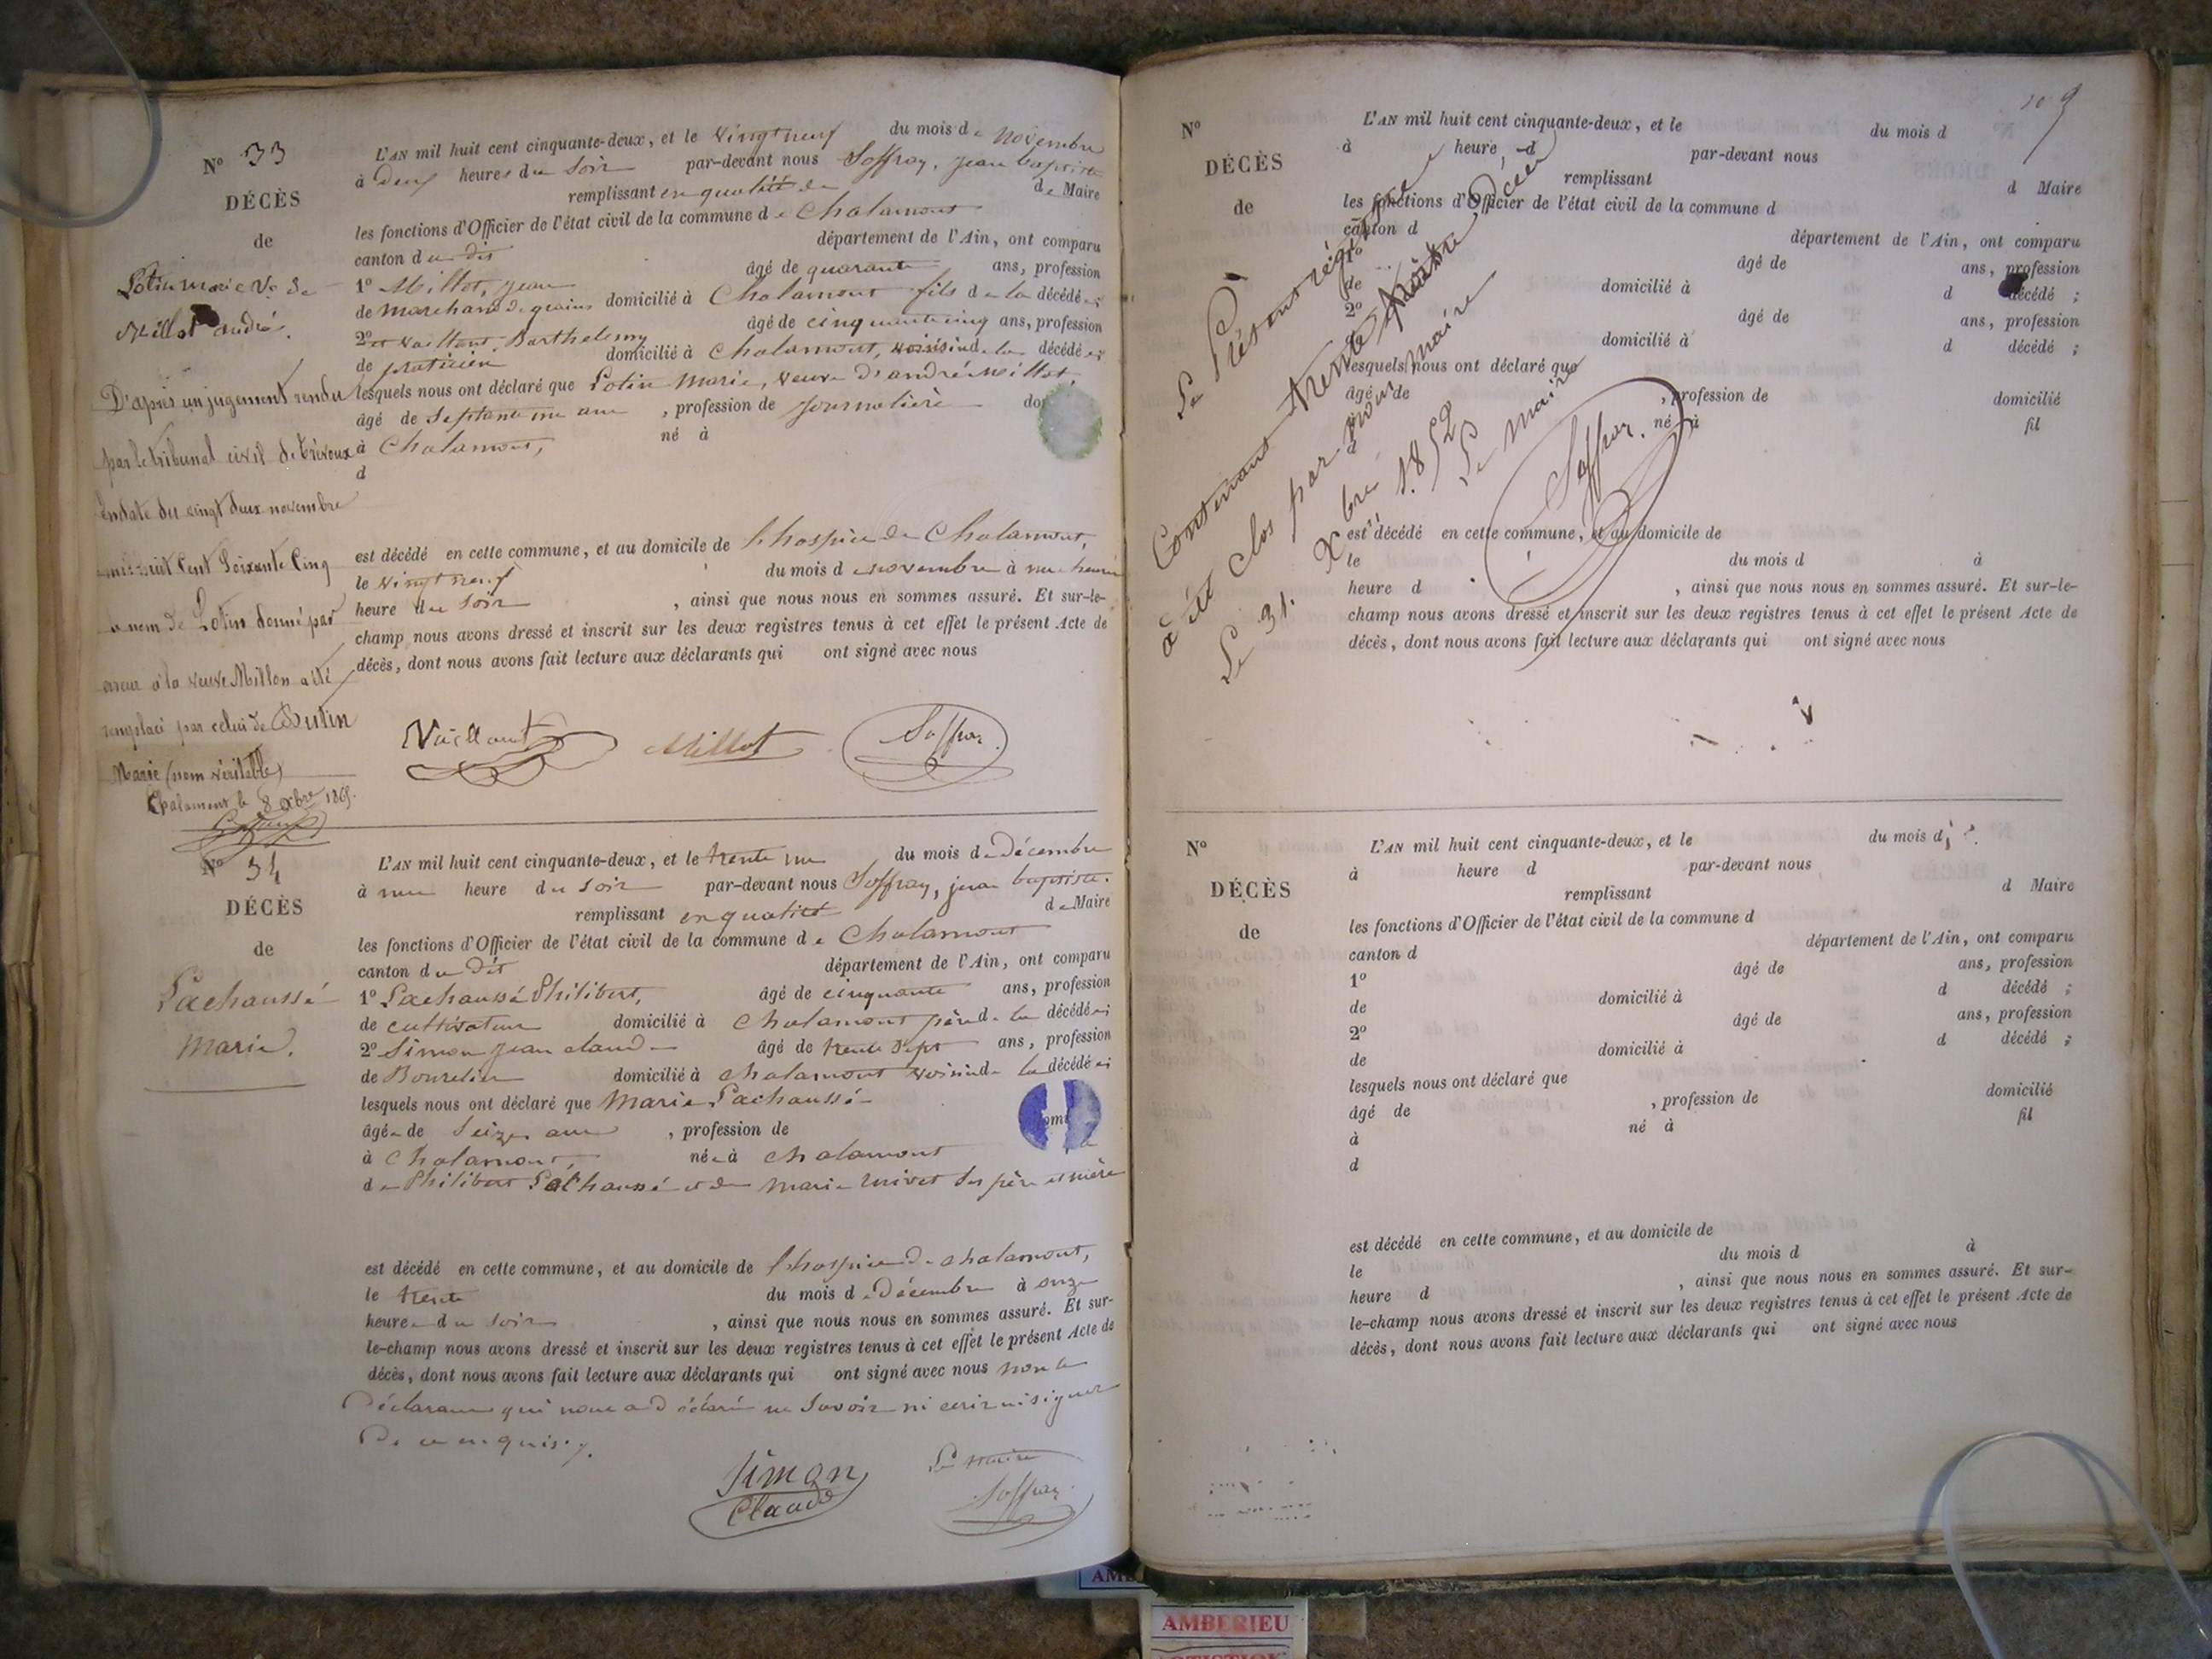 N° 33
DÉCÈS
de
Lotin Marie Ve de
Millot André.
D'après un jugement rendu
par le tribunal civil de Trévoux
en date du vingt deux novembre
mil huit cent soixante cinq
le nom de Lotin donné par
erreur à la veuve Millon a été
remplacé par celui de Butin
Marie (nom véritable)
Chalamont le 8 Xbre 1865.
L'AN mil huit cent cinquante-deux, et le vingt neuf du mois de novembre
à deux heures du soir par-devant nous Soffray, jean baptiste
remplissant en qualité de de Maire
les fonctions d'Officier de l'état civil de la commune de Chalamont
canton du dit département de l'Ain, ont comparu
1° Millot, jean âgé de quarante ans, profession
de marchand de grains domicilié à Chalamont fils de la décédée;
2° et Vaillant, Barthelemy âgé de cinquante cinq ans, profession
de praticien domicilié à Chalamont, voisin de la décédée;
lesquels nous ont déclaré que Lotin Marie, veuve d'andré Millot,
âgé de septante un ans, profession de journalière do
à Chalamont, né à
d
est décédé en cette commune, et au domicile de l'hospice de Chalamont,
le vingt neuf du mois de novembre à une heure
heure du soir, ainsi que nous nous en sommes assuré. Et sur-le-
champ nous avons dressé et inscrit sur les deux registres tenus à cet effet le présent Acte de
décès, dont nous avons fait lecture aux déclarants qui ont signé avec nous
Vaillant Millot Soffray
N° 34
DÉCÈS
de
Lachaussé
Marie.
L'AN mil huit cent cinquante-deux, et le trente un du mois de décembre
à une heure du soir par-devant nous Soffray, jean baptiste.
remplissant en qualité de Maire
les fonctions d'Officier de l'état civil de la commune de Chalamont
canton du dit département de l'Ain, ont comparu
1° Lachaussé Philibert, âgé de cinquante ans, profession
de cultivateur domicilié à Chalamont père de la décédée;
2° Simon jean claude âgé de trente sept ans, profession
de Bourelier domicilié à chalamont voisin de la décédée;
lesquels nous ont déclaré que Marie Lachaussé
âgée de seize ans, profession de
à Chalamont, née à chalamont
de Philibert Lachaussé et de Marie ses père et mère
est décédé en cette commune, et au domicile de l'hospice de chalamont,
le trente du mois de décembre à onze
heures du soir, ainsi que nous nous en sommes assuré. Et sur-
le-champ nous avons dressé et inscrit sur les deux registres tenus à cet effet le présent Acte de
décès, dont nous avons fait lecture aux déclarants qui ont signé avec nous non le
Déclarant qui nous a déclaré ne savoir ni ecrire ni signer
De ce enquis.
Simon
Claude
Le maire
Soffray
109
N°
DÉCÈS
de
L'AN mil huit cent cinquante-deux, et le du mois d
à heure d par-devant nous
remplissant d Maire
les fonctions d'Officier de l'état civil de la commune d
canton d département de l'Ain, ont comparu
1° âgé de ans, profession
de domicilié à d décédé;
2° âgé de ans, profession
de domicilié à d décédé;
lesquels nous ont déclaré que
âgé de, profession de domicilié
à né à fil
d
est décédé en cette commune, et au domicile de
le du mois d à
heure d, ainsi que nous nous en sommes assuré. Et sur-le-
champ nous avons dressé et inscrit sur les deux registres tenus à cet effet le présent Acte de
décès, dont nous avons fait lecture aux déclarants qui ont signé avec nous
Le Présent régistre
Contenant trente quatre Décès
a été clos par nous maire
Le 31. Xbre 1852
Le maire
Soffray.
N°
DÉCÈS
de
L'AN mil huit cent cinquante-deux, et le du mois d
à heure d par-devant nous
remplissant d Maire
les fonctions d'Officier de l'état civil de la commune d
canton d département de l'Ain, ont comparu
1° âgé de ans, profession
de domicilié à d décédé;
2° âgé de ans, profession
de domicilié à d décédé;
lesquels nous ont déclaré que
âgé de, profession de domicilié
à né à fil
d
est décédé en cette commune, et au domicile de
le du mois d à
heure d, ainsi que nous nous en sommes assuré. Et sur-
le-champ nous avons dressé et inscrit sur les deux registres tenus à cet effet le présent Acte de
décès, dont nous avons fait lecture aux déclarants qui ont signé avec nous
AMBERIEU